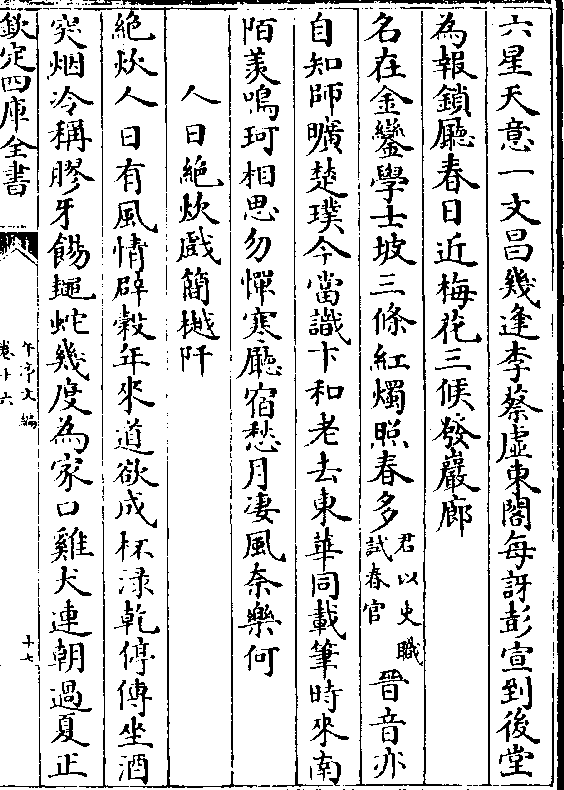 六星天意一文昌幾逢李蔡虛東閣每訝彭宣到後堂
為報鎖廳春日近梅花三候發巖廊
名在金鑾學士坡三條紅燭照春多君以史職試春官晉音亦
自知師曠楚璞今當識卞和老去東華同載筆時來南
陌羨鳴珂相思勿憚寒廳宿愁月淒風奈樂何
人日絕炊戲簡樾阡
絕炊人日有風情辟穀年來道欲成杯淥乾停傅坐酒
突烟冷稱膠牙餳蠅蛇幾度為家口雞犬連朝過夏正
欽定四庫全書
午亭文編
卷十六
十七